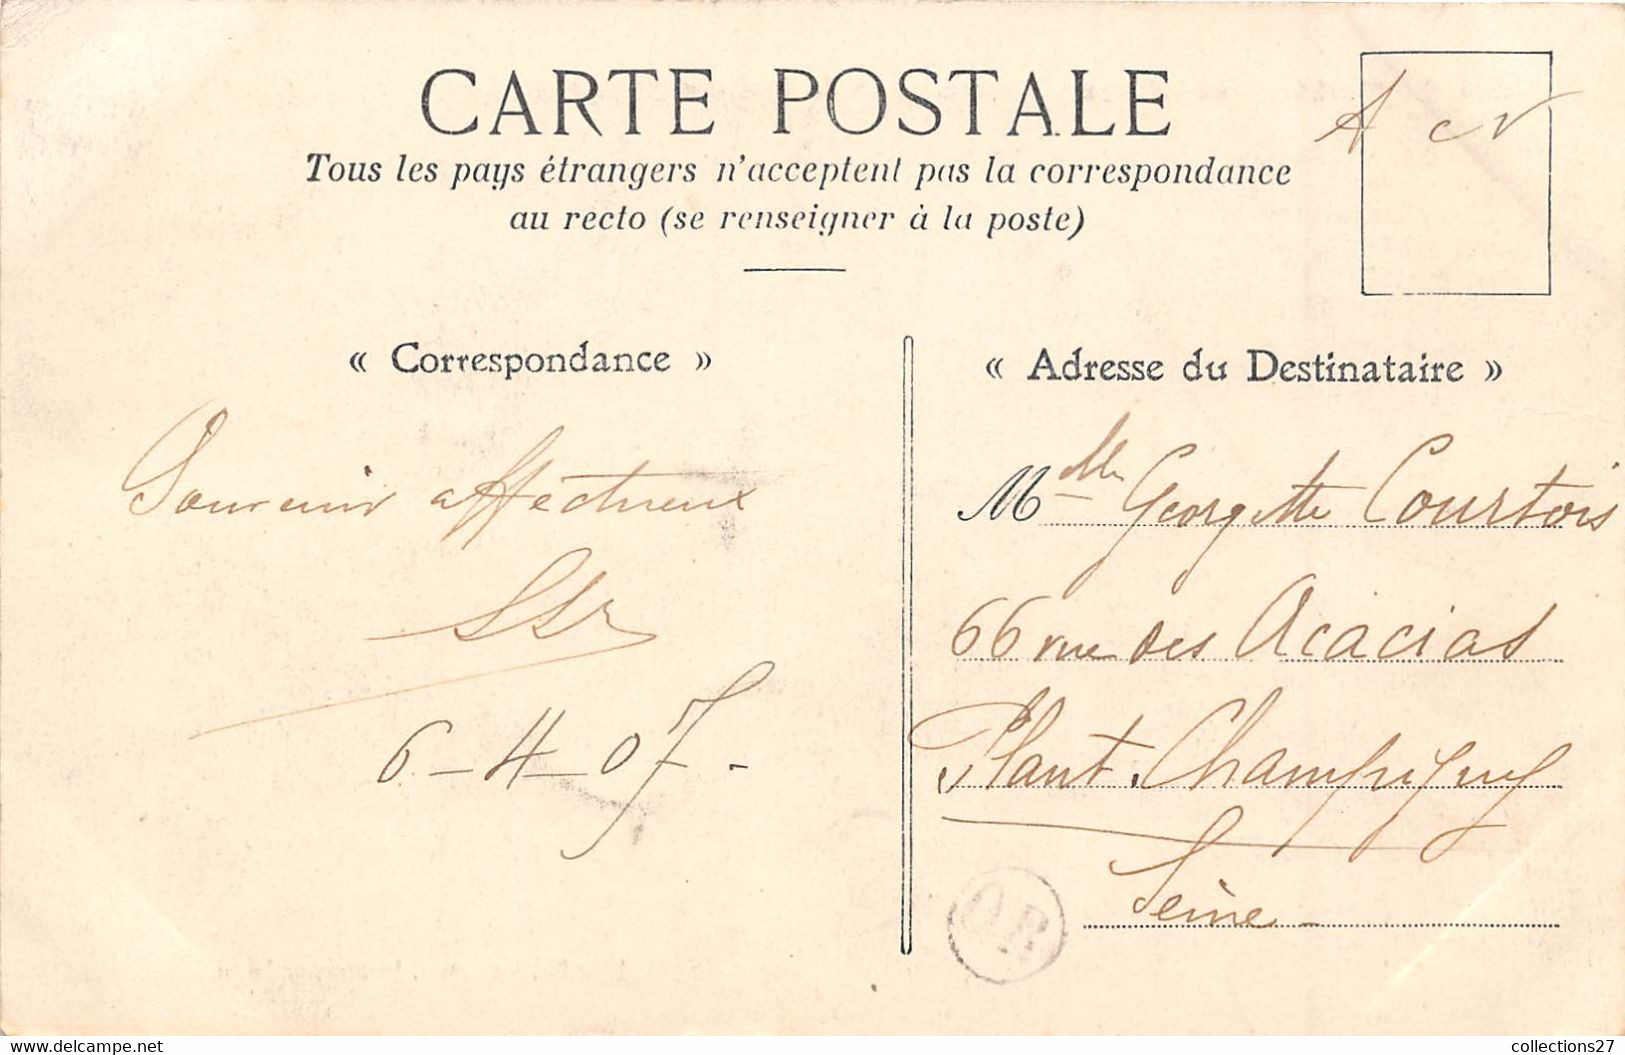 CARTE POSTALE
Tous les pays étrangers n'acceptent pas la correspondance
au recto (se renseigner à la poste)
« Correspondance »
Souvenir affectueux
6-4-07-
« Adresse du Destinataire »
Mdlle Georgette Courtois
66 rue des Acacias
Plant. Champigny
Seine
OR
delcampe.net
collections27